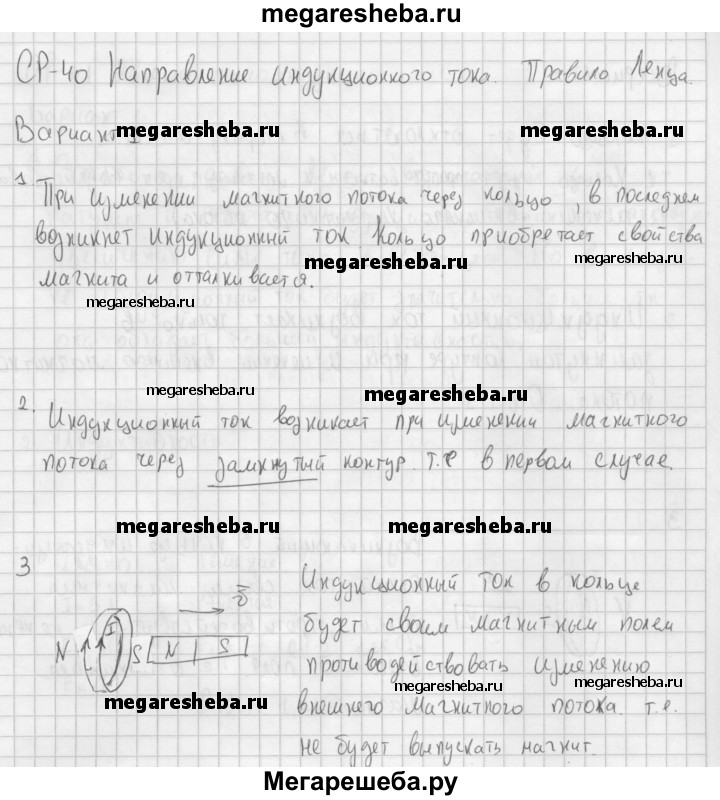 megaresheba.ru
СР-40 Направление индукционного тока. Правило Ленца.
Вариант 1 megaresheba.ru megaresheba.ru
1 При изменении магнитного потока через кольцо, в последнем
возникнет индукционный ток. Кольцо приобретает свойства
megaresheba.ru megaresheba.ru
магнита и отталкивается.
megaresheba.ru
megaresheba.ru megaresheba.ru
2. Индукционный ток возникает при изменении магнитного
потока через замкнутый контур т.е в первом случае.
megaresheba.ru megaresheba.ru
3
Индукционный ток в кольце
будет своим магнитным полем
противодействовать изменению
megaresheba.ru megaresheba.ru
внешнего магнитного потока. т.е.
не будет выпускать магнит.
v
N I S N S
megaresheba.ru
Мегарешеба.ру